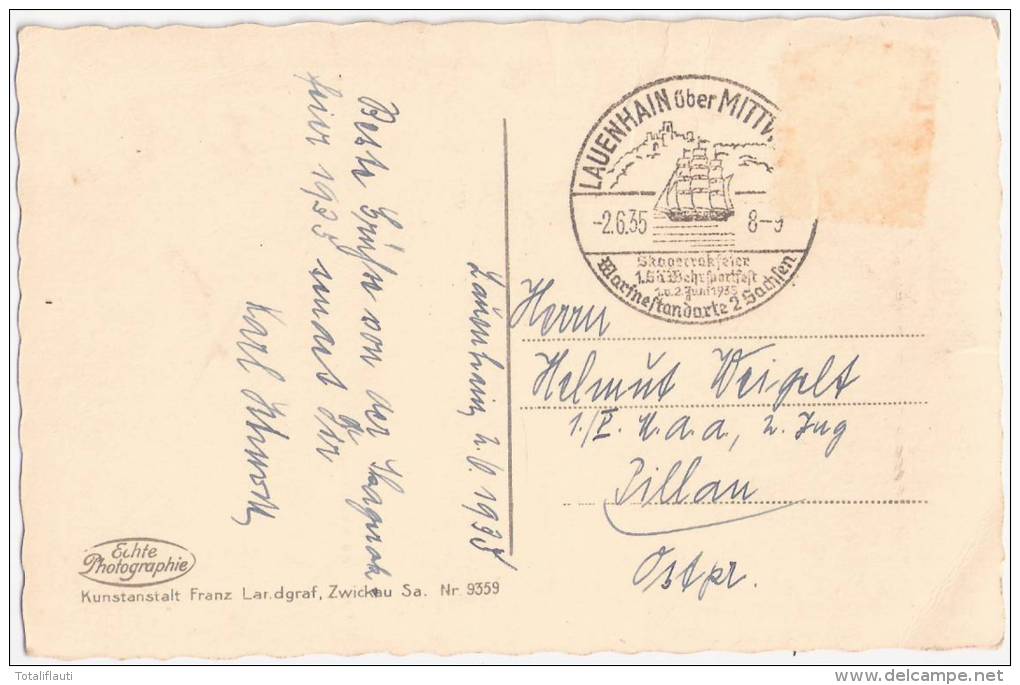 LAUENHAIN über MITTW
-2.6.35 8-9
Skagerrakfeier
1.SA Wehrsportfest
1.u.2.Juni 1935
Marinestandarte 2 Sachsen
Beste Grüße von der Skagerak-
feier 1935 sendet dir
Karl
Lauenhain 2.6.1935
Herrn
Helmut Weigelt
1./I. M.a.a, 2. Zug
Pillau
Ostpr.
Echte
Photographie
Kunstanstalt Franz Landgraf, Zwickau Sa. Nr 9359
Totaliflauti
www.delcampe.net